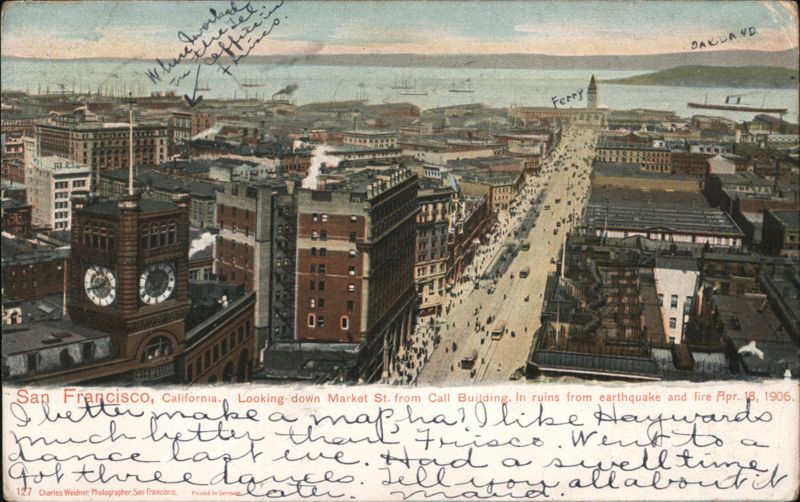 Where I worked
in the Tel.
office in
Frisco.
OAKLAND
Ferry
San Francisco, California. Looking down Market St. from Call Building. In ruins from earthquake and fire Apr. 18, 1906.
I better make a map, ha! I like Haywards
much better than Frisco. Went to a
dance last eve. Had a swell time
Got three dances. Tell you all about it
later. Maud.
127 Charles Weidner, Photographer, San Francisco. Printed in Germany